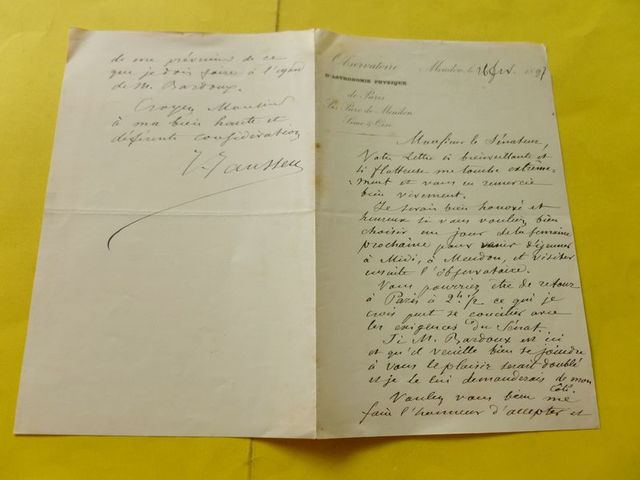 Observatoire
D'ASTRONOMIE PHYSIQUE
de Paris
Sis Parc de Meudon
Seine & Oise
Meudon, le 26 1897
Monsieur le Sénateur,
Votre Lettre si bienveillante et
si flatteuse me touche extrême-
-ment et vous en remercie
bien vivement.
Je serais bien honoré et
heureux si vous vouliez bien
choisir un jour de la semaine
prochaine pour venir déjeuner
à Midi, à Meudon, et visiter
ensuite l'observatoire.
Vous pourriez être de retour
à Paris à 2h 1/2 ce qui je
crois peut se concilier avec
les exigences du Sénat.
Si M. Bardoux est ici
et qu'il veuille bien se joindre
à vous le plaisir serait doublé
et je le lui demanderais de mon
côté.
Veuillez vous bien me
faire l'honneur d'accepter et
de me prévenir de ce
que je dois faire à l'égard
de M. Bardoux.
Croyez Monsieur
à ma bien haute et
déférente considération
J. Janssen